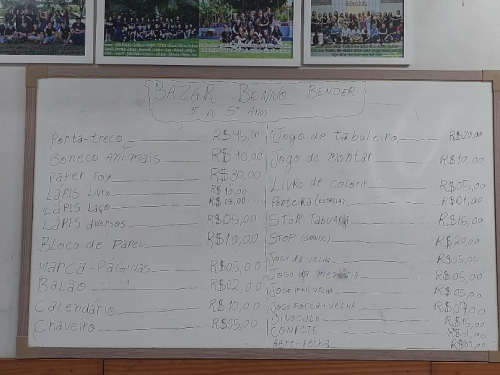 BAZAR BENNO BENDER
5º A 5º ANOS
Porta-treco R$45,00
Boneco Animais R$40,00
Paper Toy R$30,00
Lápis Livro R$10,00
Lápis Laço
Lápis diversos R$05,00
Bloco de Papel R$10,00
Marca-Páginas R$05,00
Balão R$02,00
Calendário R$10,00
Chaveiro R$05,00
Jogo de Tabuleiro R$20,00
Jogo de montar R$10,00
Livro de colorir R$05,00
Ponteira (estrela) R$01,00
STOP TABUADA R$16,00
STOP (gente) R$20,00
Jogo da velha R$05,00
Jogo da memória R$05,00
Jogo velha R$05,00
Jogo Forca + velha
Binóculo R$15,00
Confete
Abre-Fecha